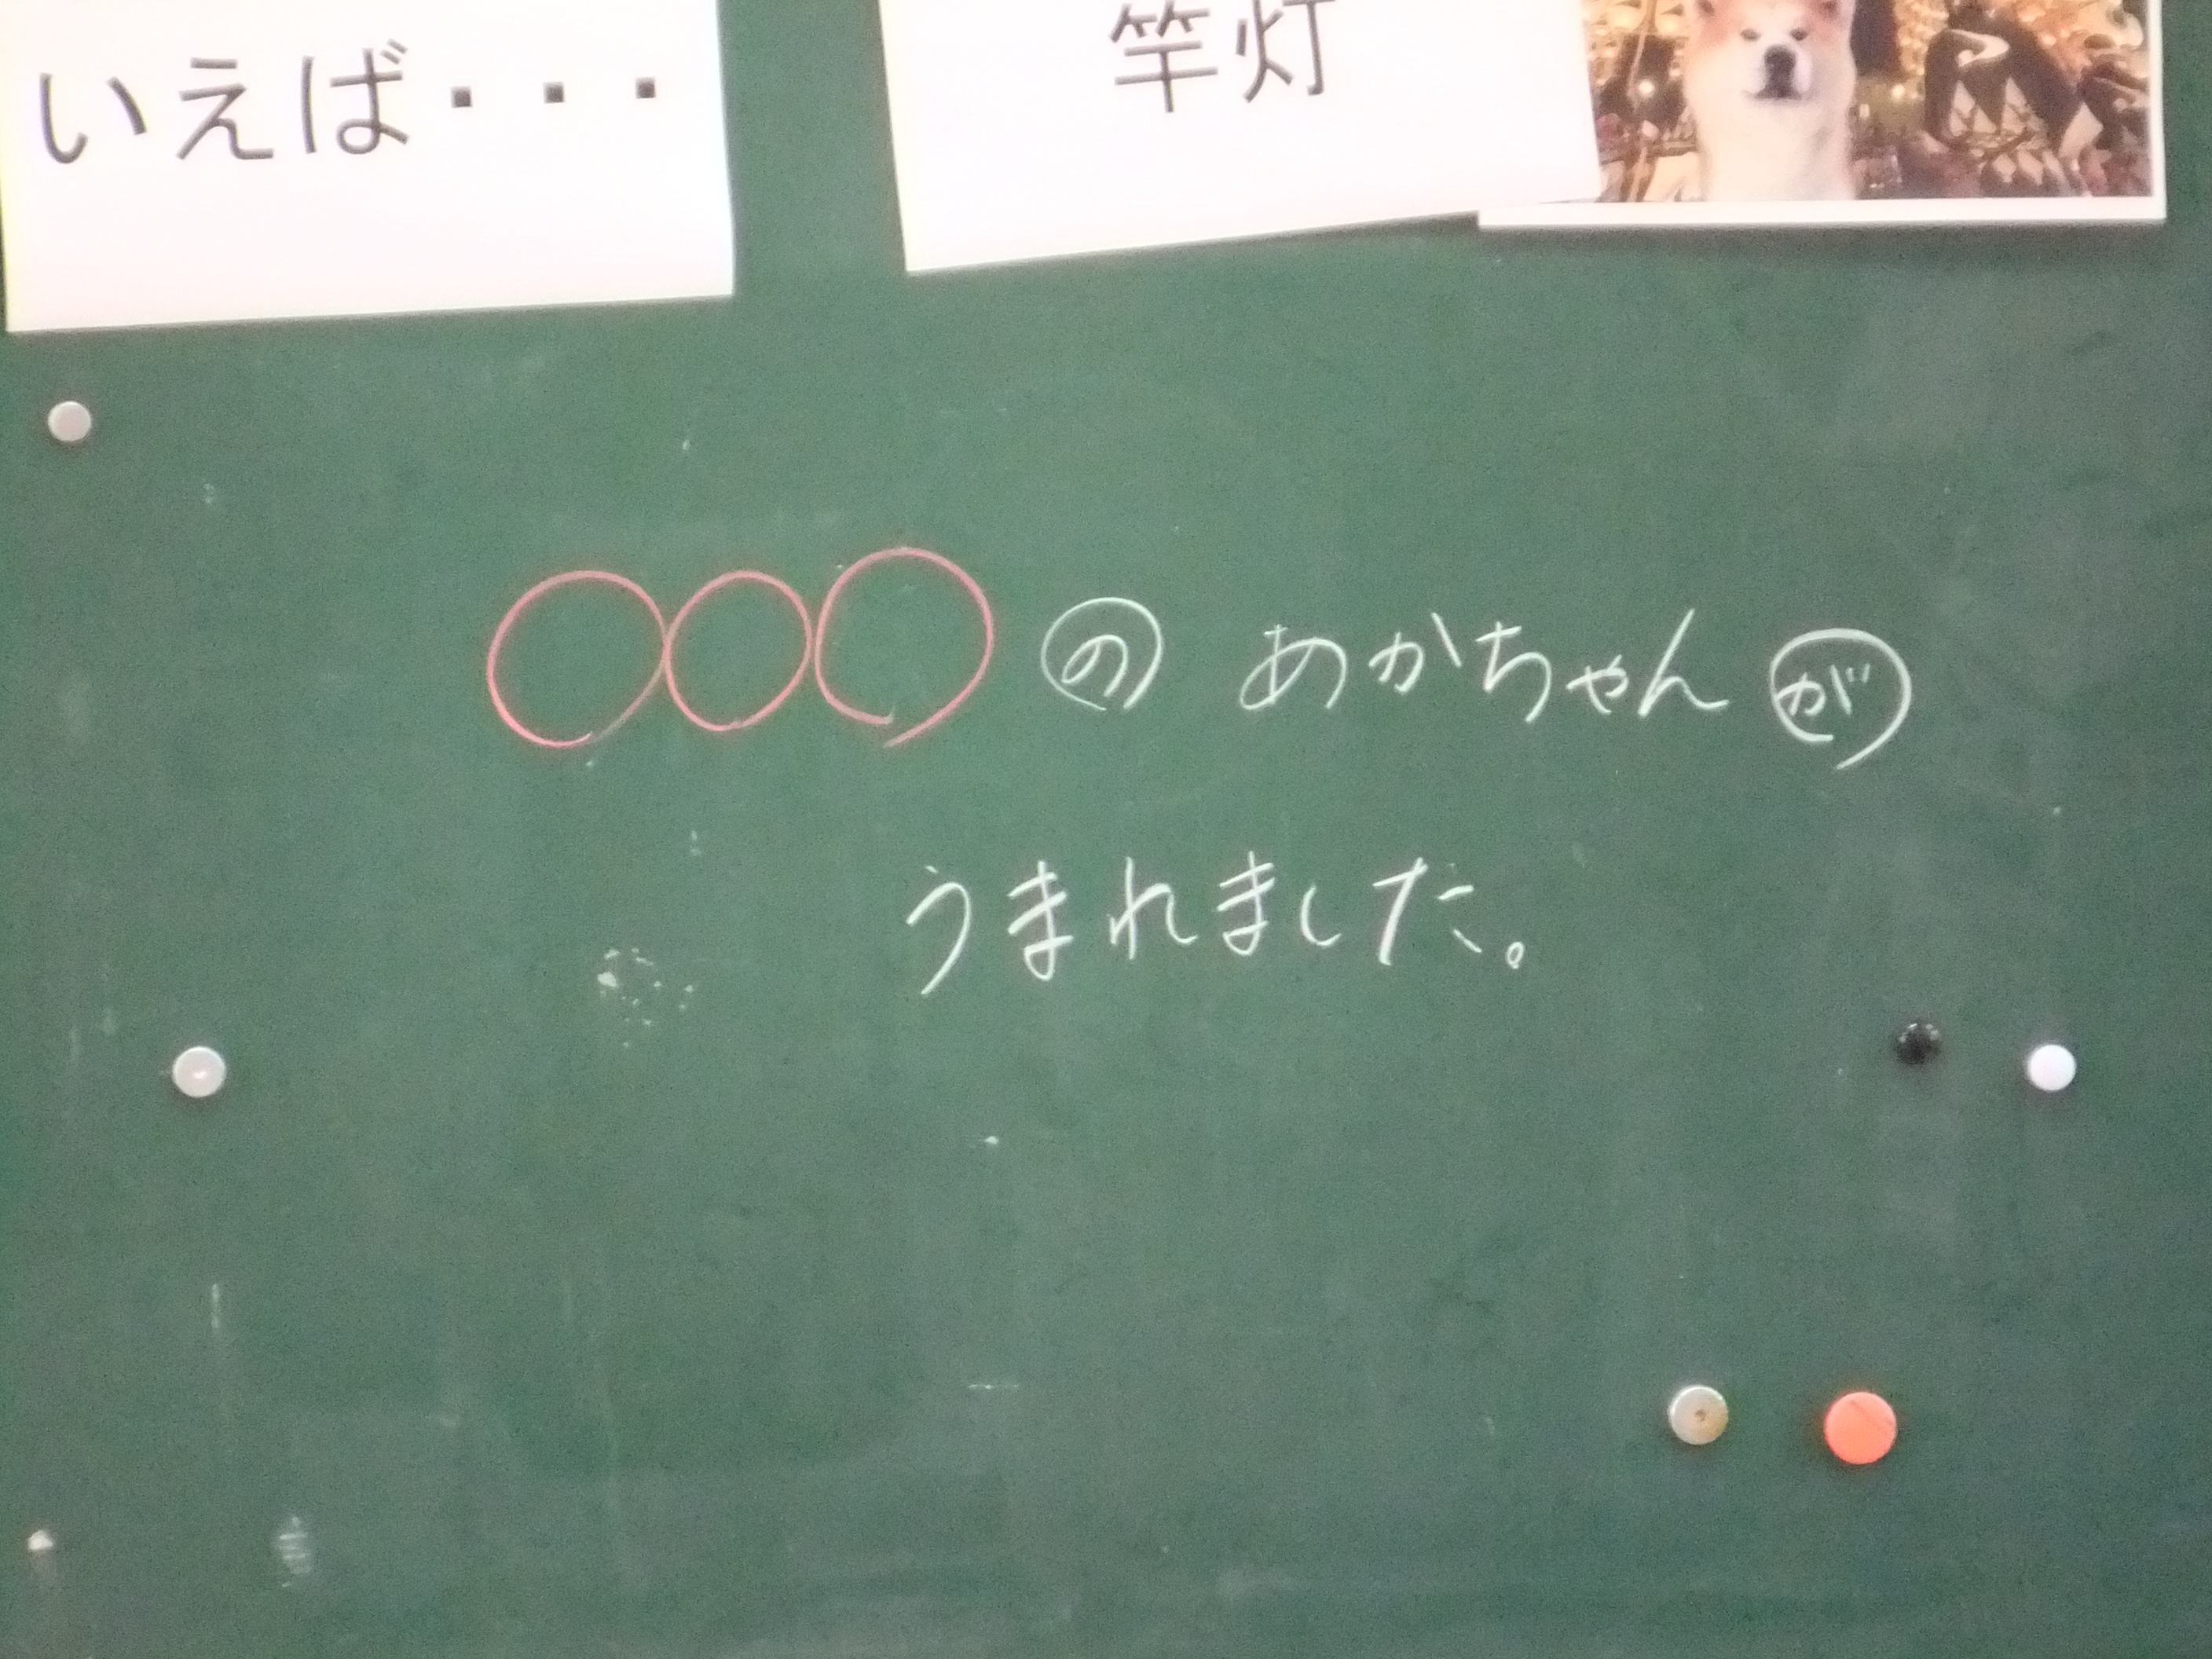 いえば・・・
竿灯
○○○のあかちゃんが
うまれました。